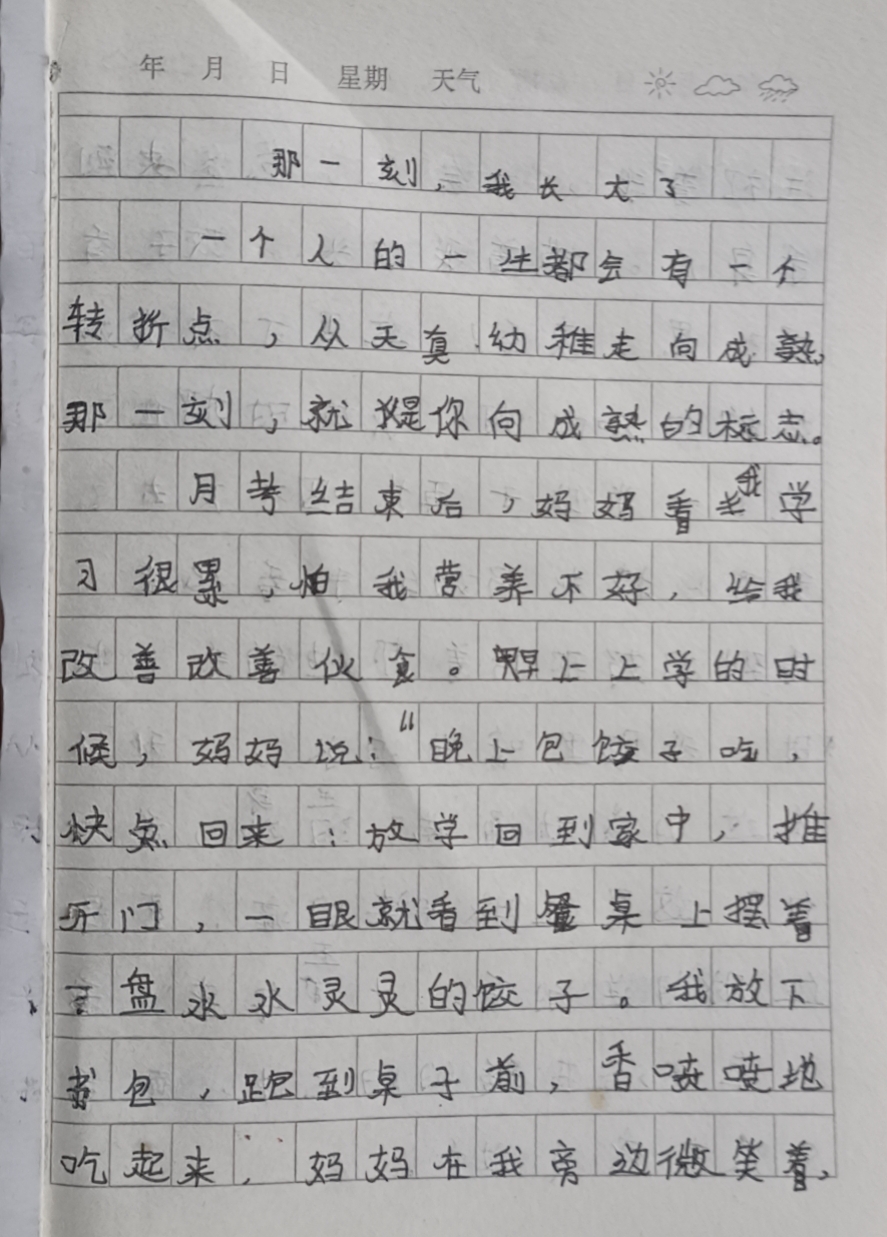 年 月 日 星期 天气
那一刻，我长大了
一个人的一生都会有一个
转折点，从天真幼稚走向成熟，
那一刻，就是你向成熟的标志。
月考结束后，妈妈看我学
习很累，怕我营养不好，给我
改善改善伙食。早上上学的时
候，妈妈说：“晚上包饺子吃，
快点回来：放学回到家中，推
开门，一眼就看到餐桌上摆着
盘水水灵灵的饺子。我放下
书包，跑到桌子前，香喷喷地
吃起来，妈妈在我旁边微笑着，